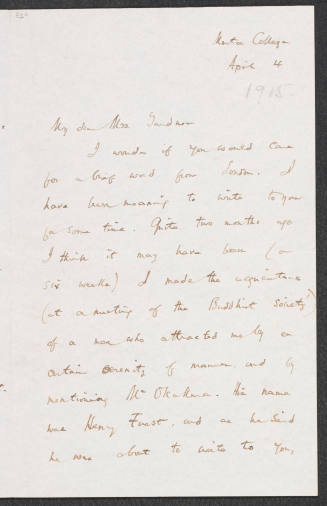 Merton College
April 4
1915.
My dear Mrs Gardner
I wonder if you would care
for a brief word from London. I
have been meaning to write to you
for some time. Quite two months ago
I think it may have been (or
six weeks) I made the acquaintance
(at a meeting of the Buddhist Society)
of a man who attracted me by a
certain serenity of manner, and by
mentioning Mr Okakura. His name
was Henry Furst, and as he said
he was about to write to you,